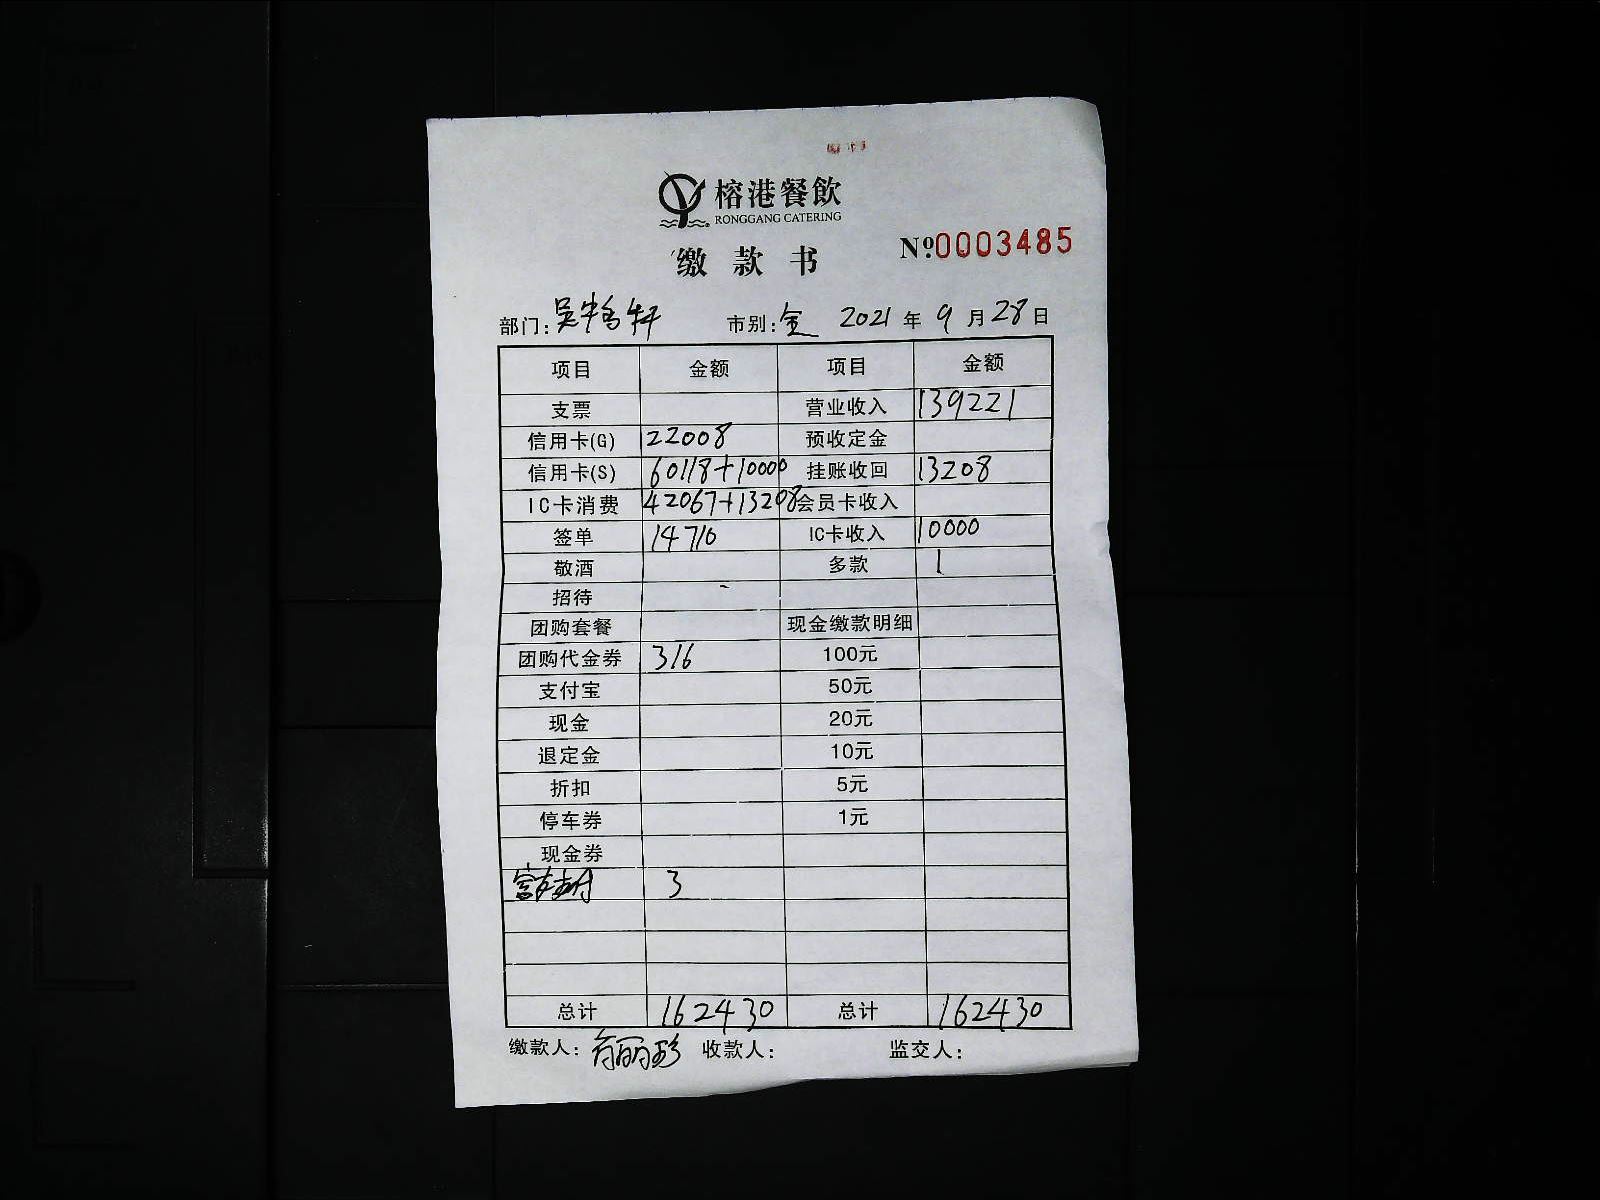 榕港餐飲
RONGGANG CATERING
缴款书
№:0003485
部门: 市别: 2021年9月28日
项目 金额 项目 金额
支票 营业收入 139221
信用卡(G) 22008 预收定金
信用卡(S) 60118+10000 挂账收回 13208
IC卡消费 42067+13208 会员卡收入
签单 14710 IC卡收入 10000
敬酒 多款 1
招待
团购套餐 现金缴款明细
团购代金券 316 100元
支付宝 50元
现金 20元
退定金 10元
折扣 5元
停车券 1元
现金券
富友支付 3
总计 162430 总计 162430
缴款人: 收款人: 监交人: